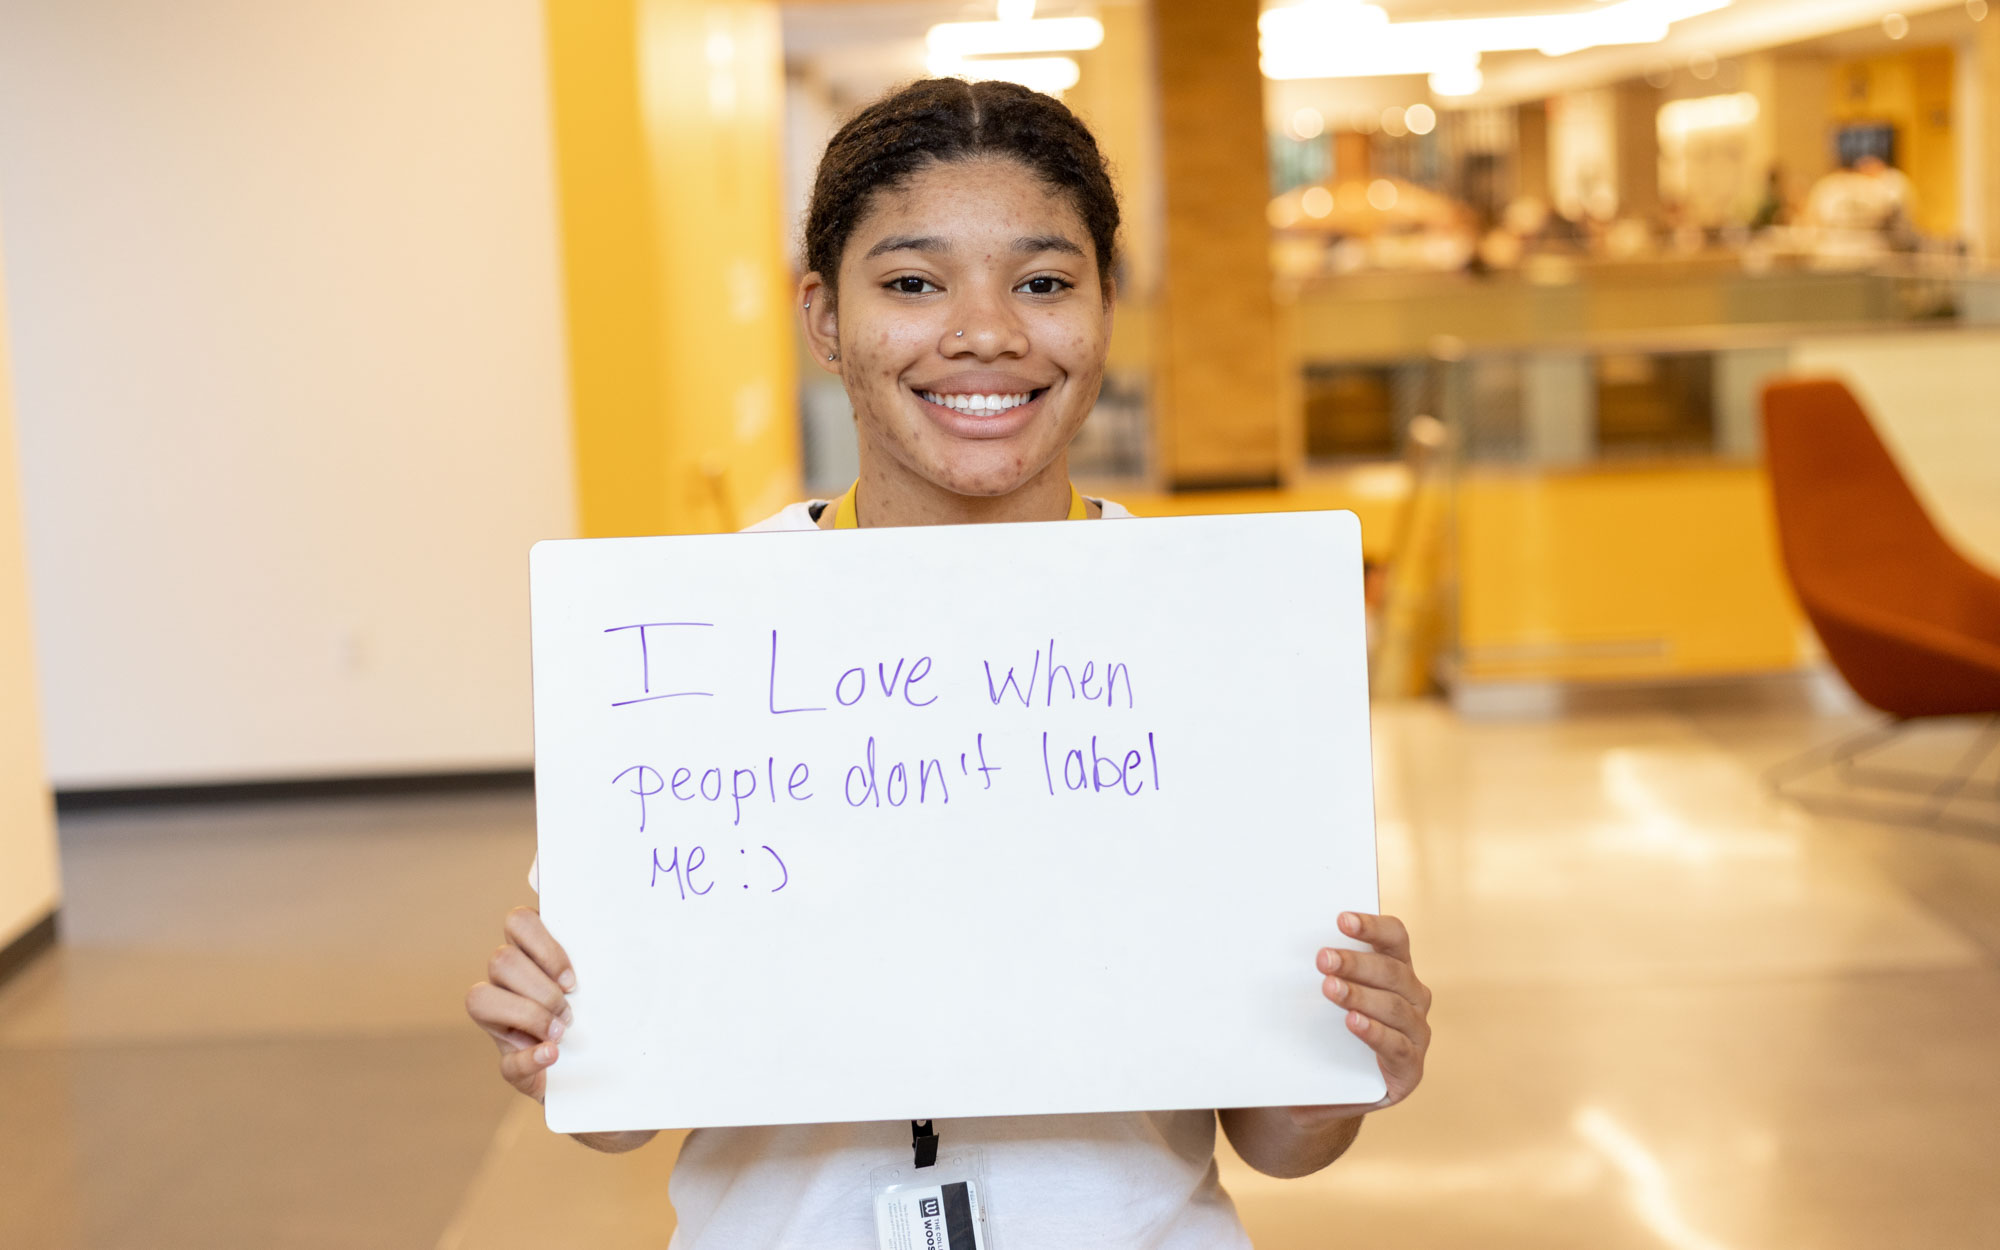 I Love when
people don't label
me :)
W
THE COLL
WOOS